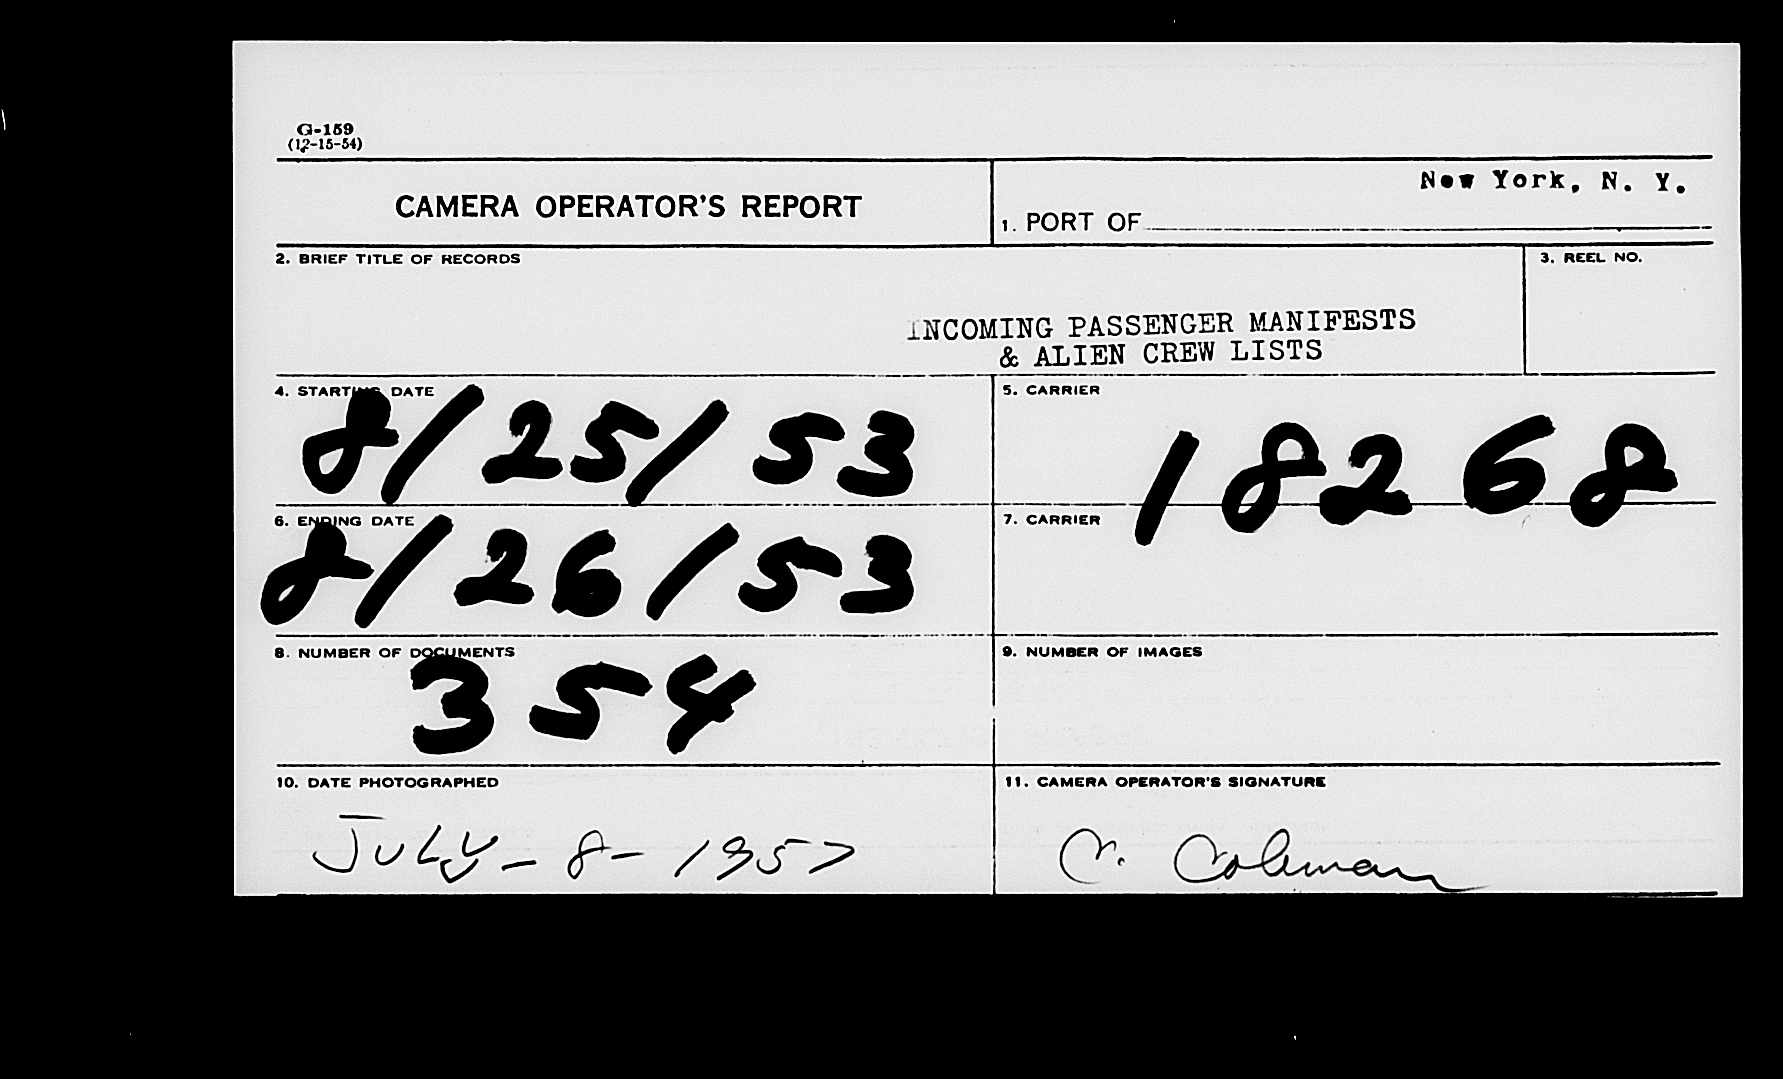 G-159
(12-15-54)
CAMERA OPERATOR'S REPORT
New York, N. Y.
1. PORT OF
2. BRIEF TITLE OF RECORDS
3. REEL NO.
INCOMING PASSENGER MANIFESTS
& ALIEN CREW LISTS
4. STARTING DATE
8/25/53
5. CARRIER
18268
6. ENDING DATE
8/26/53
7. CARRIER
8. NUMBER OF DOCUMENTS
354
9. NUMBER OF IMAGES
10. DATE PHOTOGRAPHED
JULY-8-1957
11. CAMERA OPERATOR'S SIGNATURE
C. Coleman